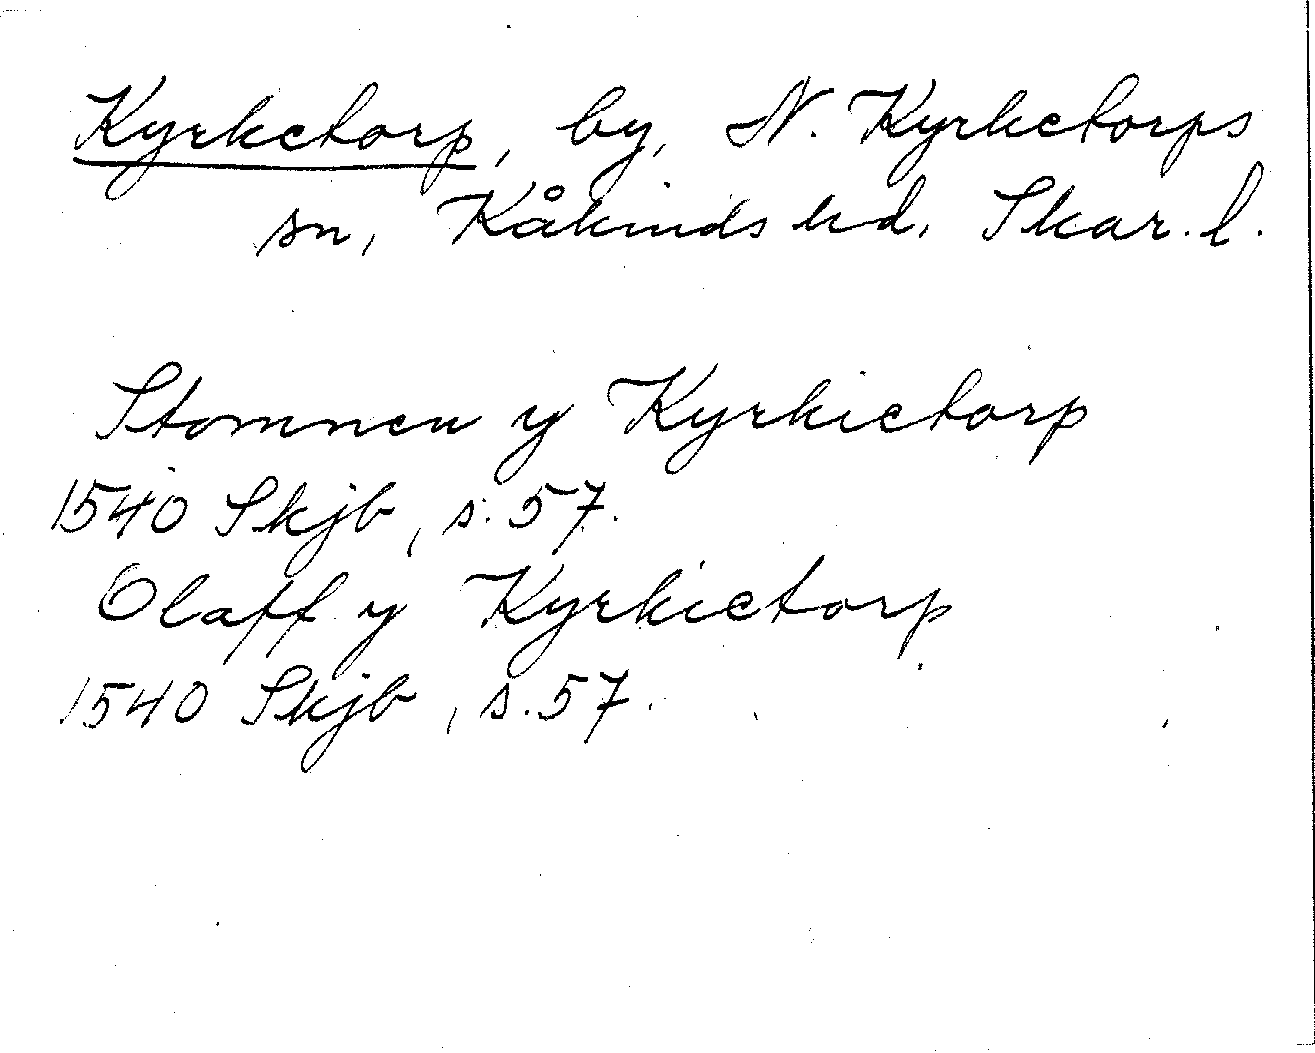 Kyrketorp, by, N. Kyrketorps
sn, Kåkinds hd, Skar. l.
Stommen y Kyrkietorp
1540 Skjb, s. 57.
Olaff y Kyrkietorp
1540 Skjb, s. 57.